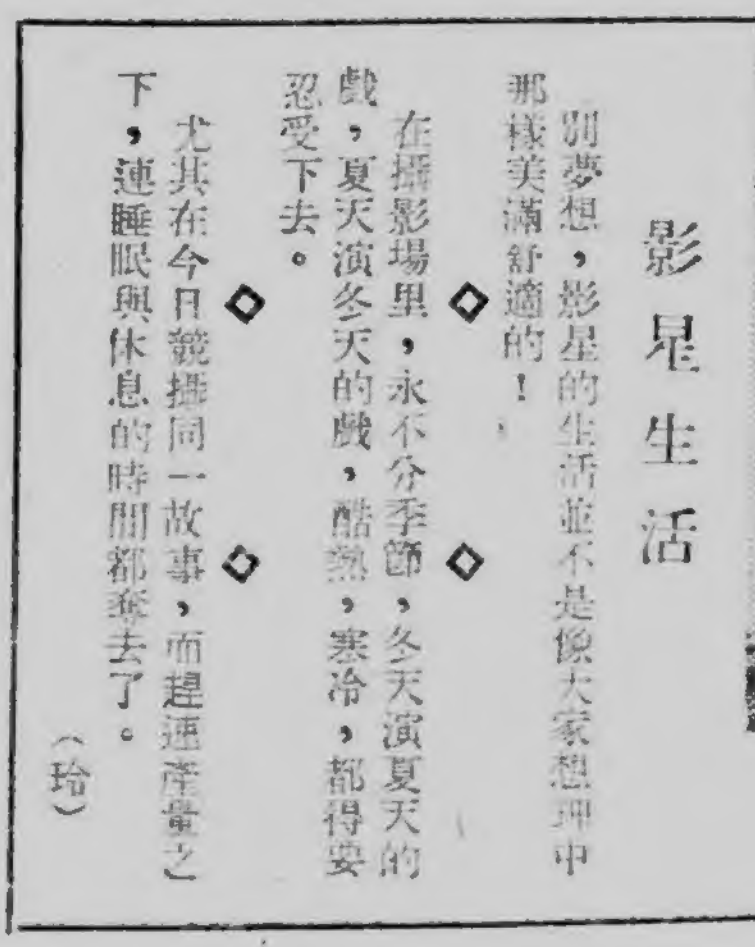 影星生活
別夢想，影星的生活並不是像大家想理中
那樣美滿舒適的！
在攝影場里，永不分季節，冬天演夏天的
戲，夏天演冬天的戲，酷熱，寒冷，都得要
忍受下去。
尤其在今日競攝同一故事，而趕速產量之
下，連睡眠與休息的時間都奪去了。
（玲）